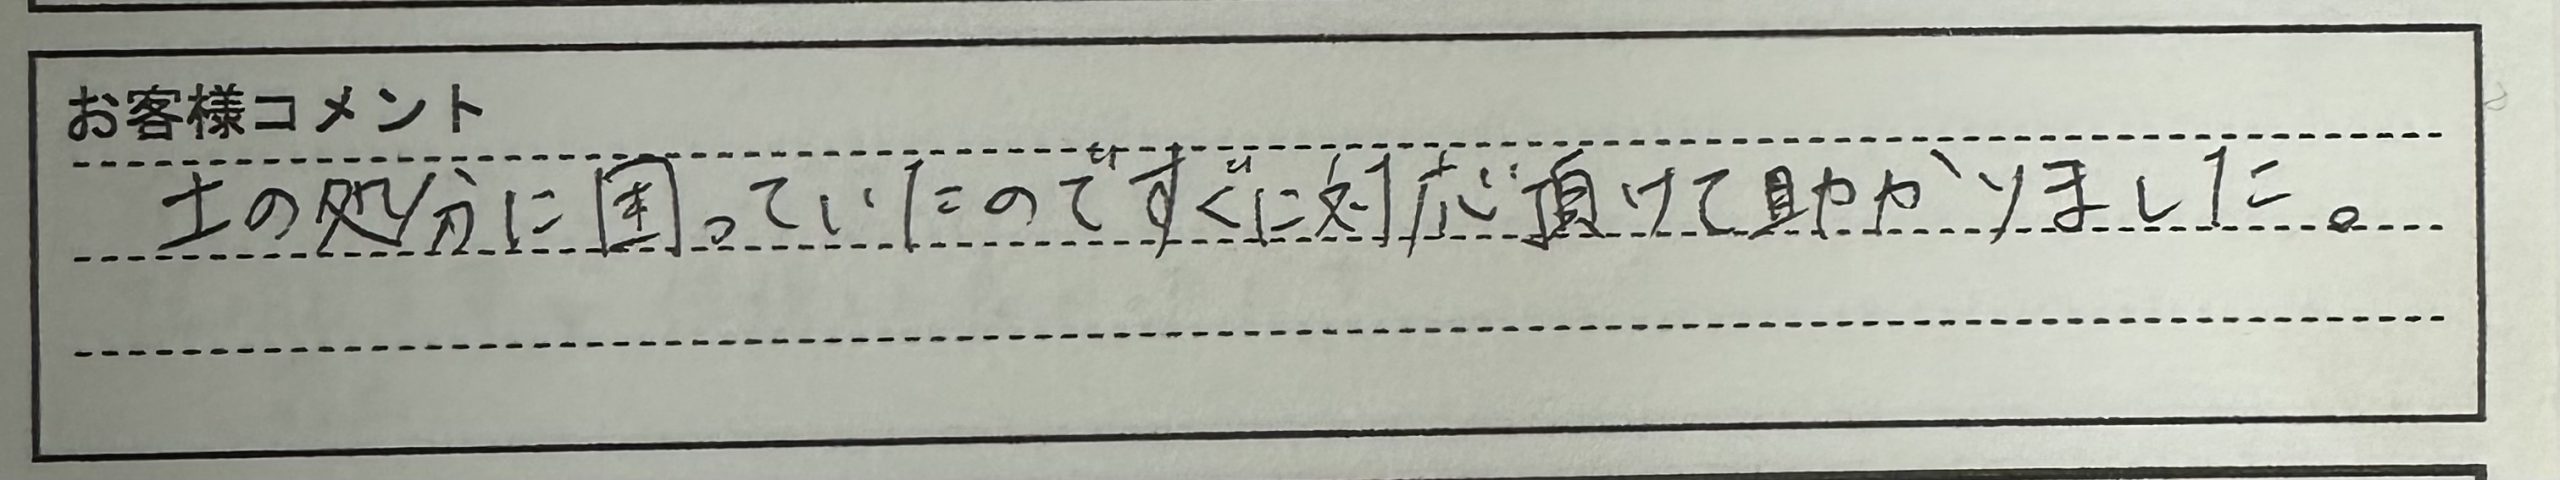 お客様コメント
土の処分に困っていたのですぐに対応頂けて助かりました。